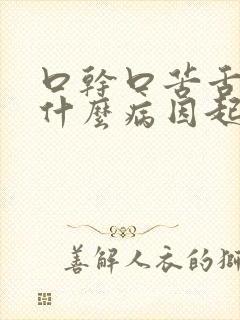 口幹口苦舌
什麼病因起
善解人衣的獅